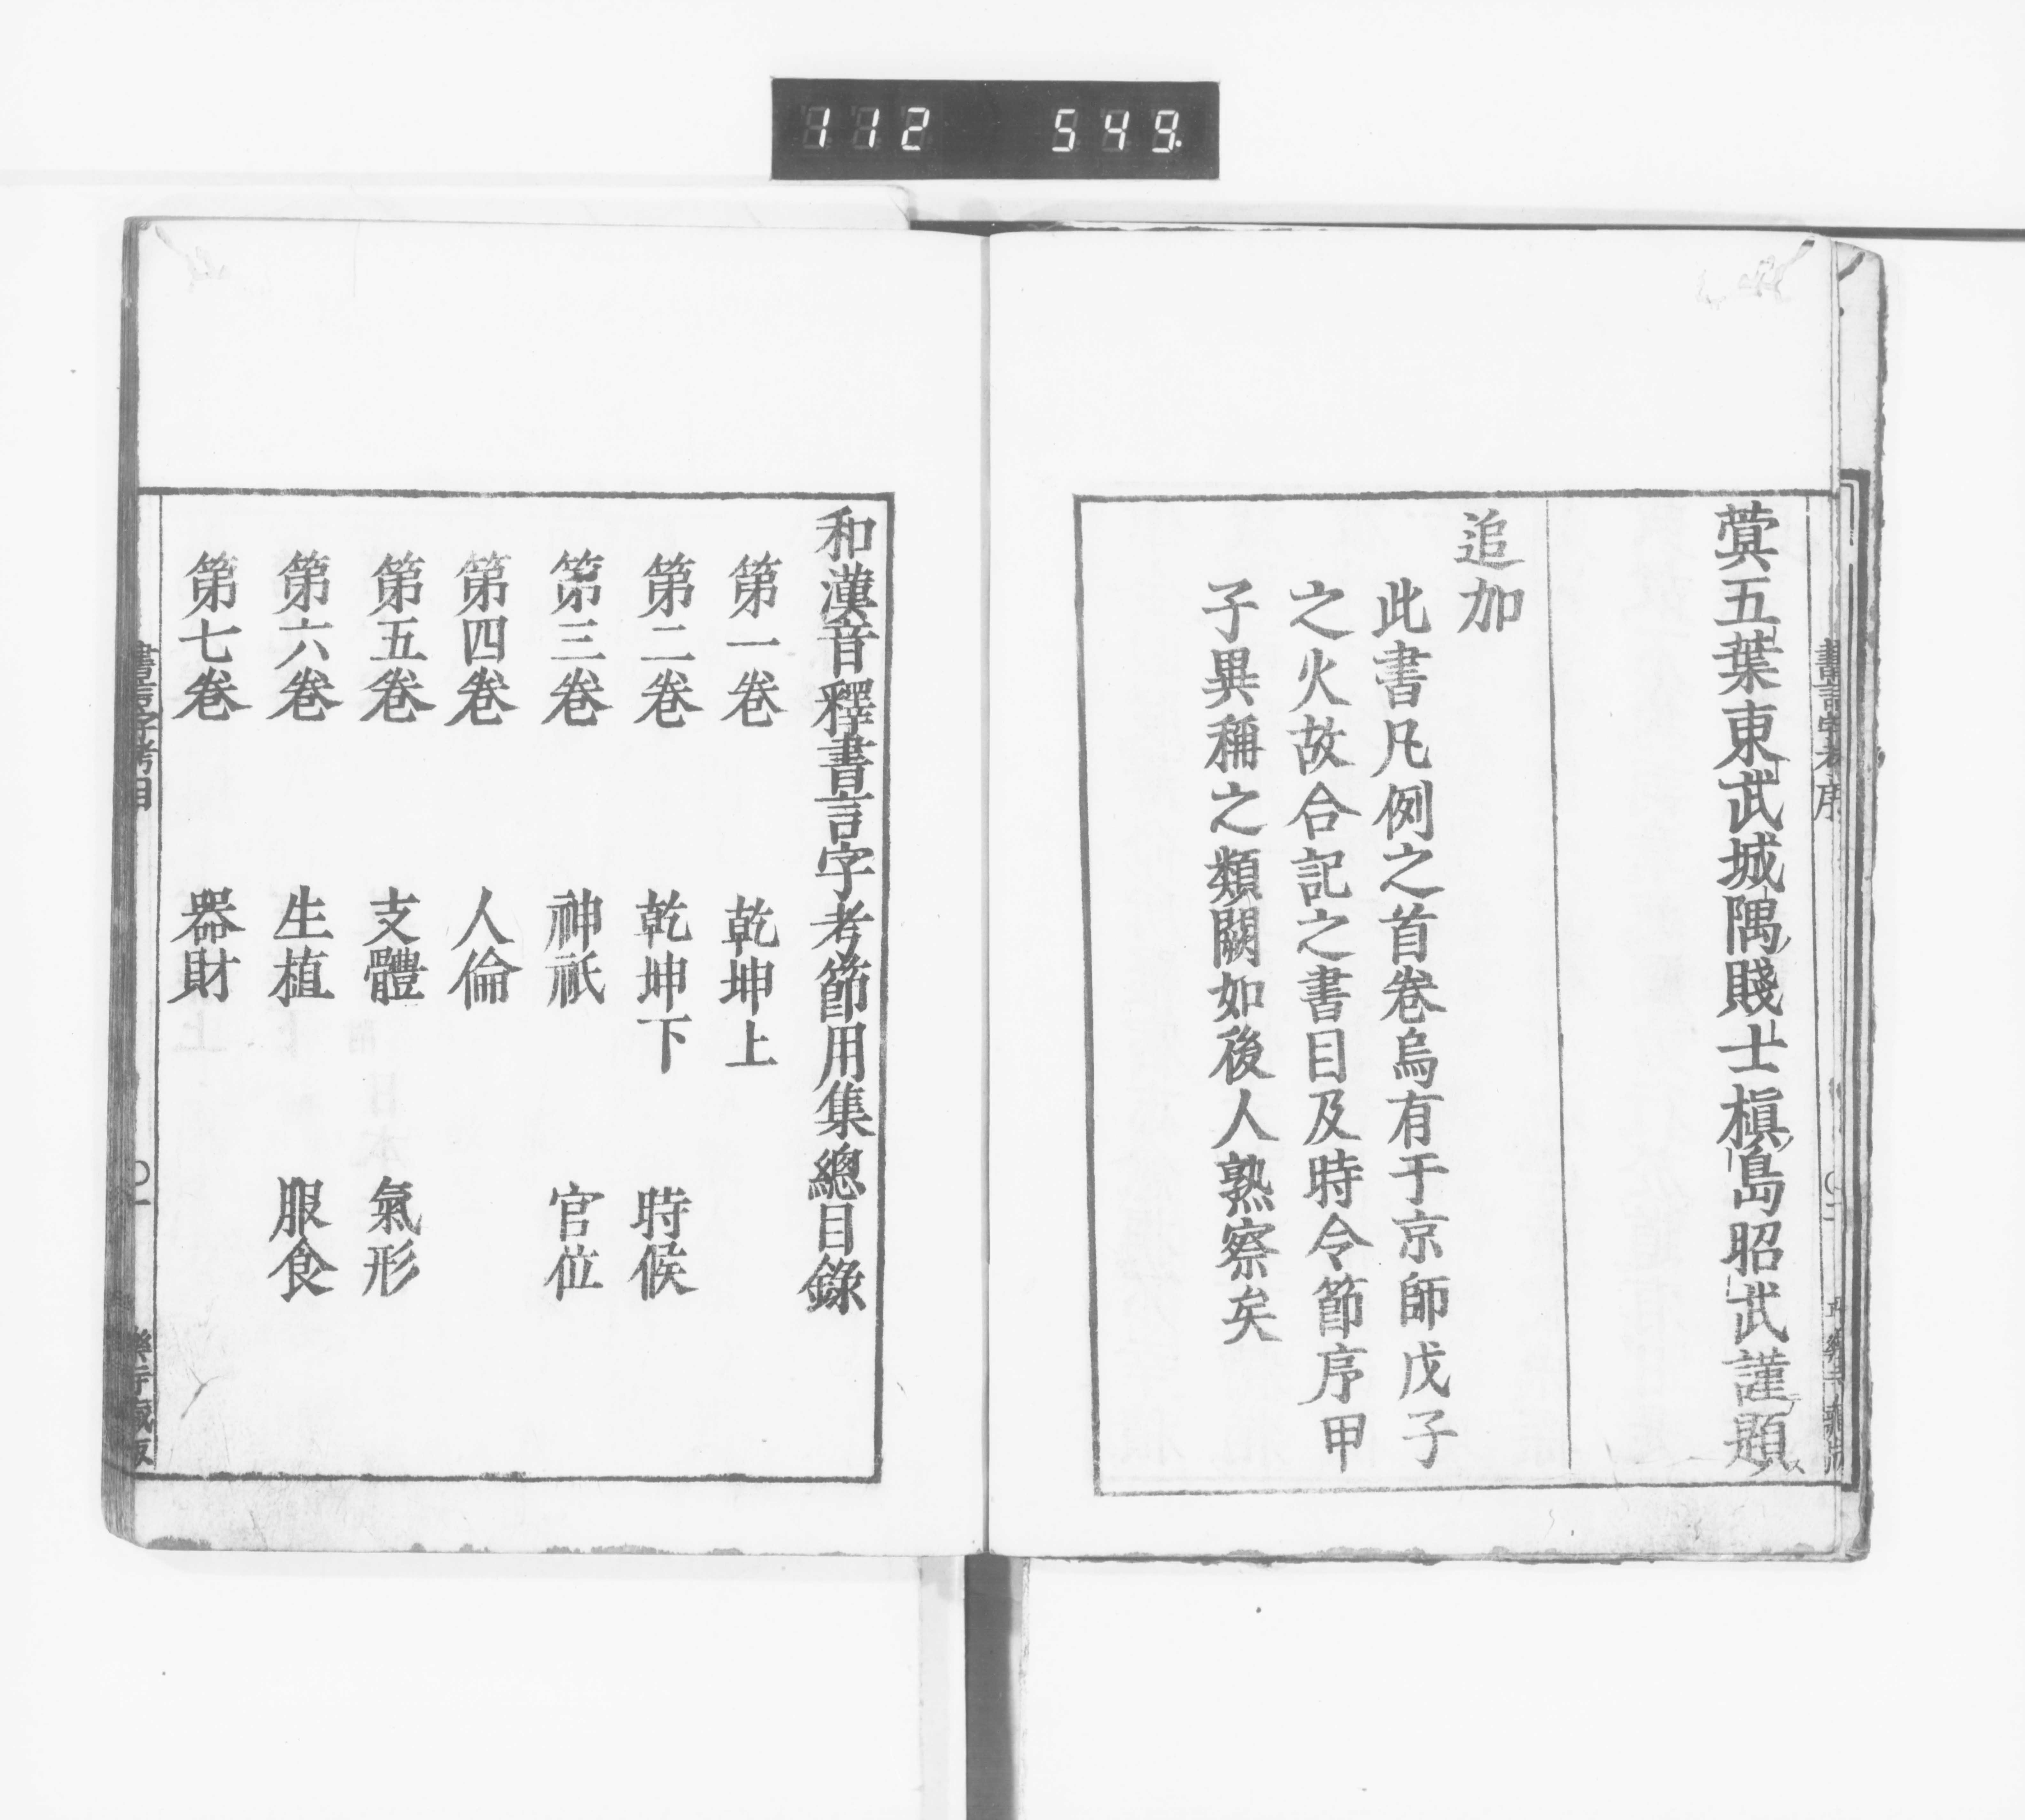 112 549.
蓂五葉東武城隅賤士槙島昭武謹題
追加
此書凡例之首卷烏有于京師戊子
之火故合記之書目及時令節序甲
子異稱之類闕如後人熟察矣
和漢音釋書言字考節用集總目錄
第一卷 乾坤上
第二卷 乾坤下 時候
第三卷 神祇 官位
第四卷 人倫
第五卷 支體 氣形
第六卷 生植 服食
第七卷 器財
書言字考目